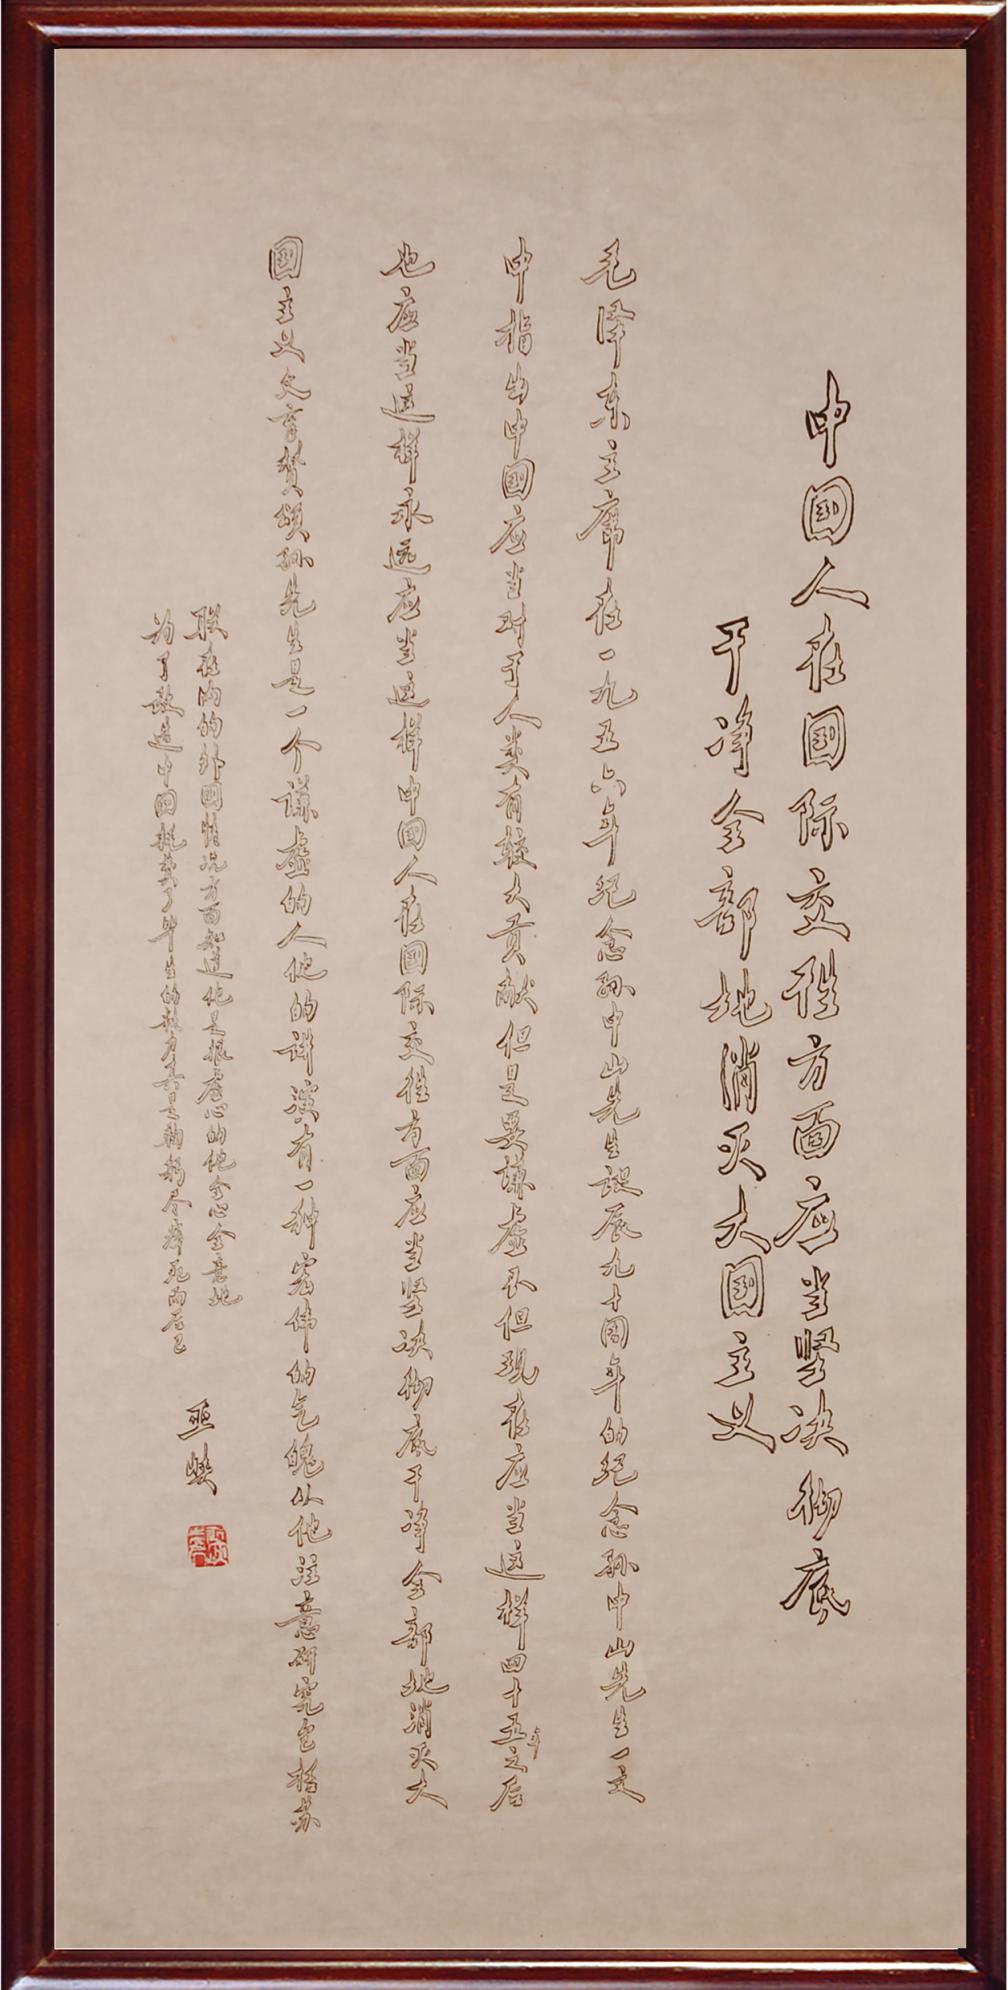 中国人在国际交往方面应当坚决彻底
干净全部地消灭大国主义
毛泽东主席在一九五六年纪念孙中山先生诞辰九十周年的纪念孙中山先生一文
中指出中国应当对于人类有较大贡献但是要谦虚不但现在应当这样四十五年之后
也应当这样永远应当这样中国人在国际交往方面应当坚决彻底干净全部地消灭大
国主义文章赞颂孙先生是一个谦虚的人他的讲演有一种宏伟的气魄从他注意研究包括苏
联在内的外国情况方面知道他是很虚心的他全心全意地
为了改造中国耗费了毕生的精力真是鞠躬尽瘁死而后已